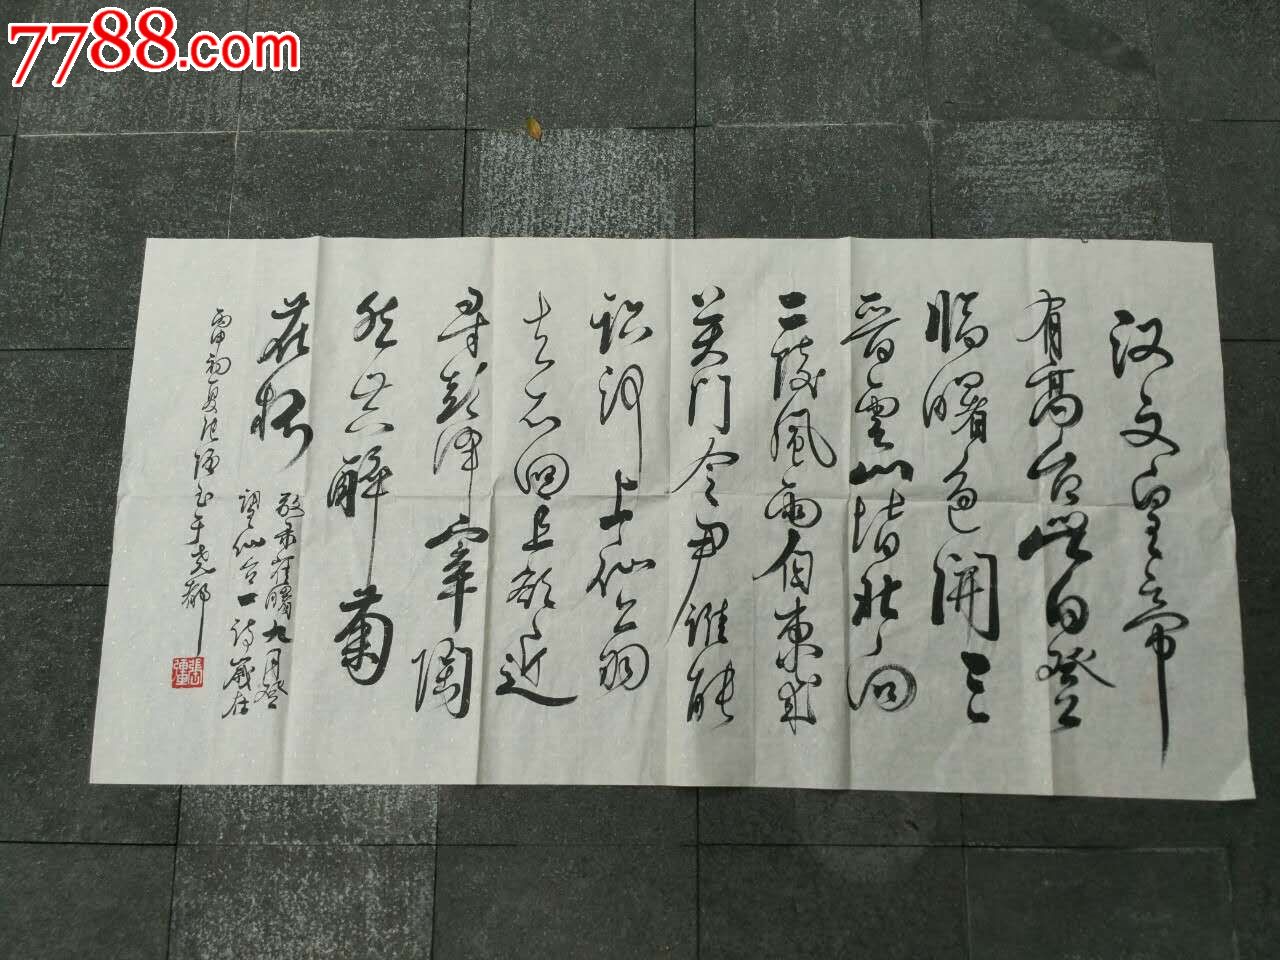 7788.com
汉文皇帝
有高台此日登
临曙色開三
晋雲山皆北向
二陵風雨自東来
关门令尹谁能
识河上仙翁
去不回且欲近
寻彭泽宰陶
然共醉菊
花杯
敬录崔曙九月登
望仙台一诗岁在
初夏张于尧都